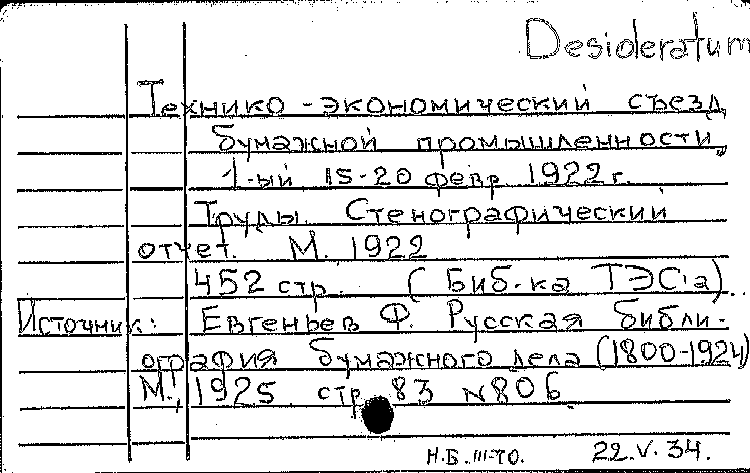 Desideratum
Технико-экономический съезд
бумажной промышленности,
1-ый 15-20 февр 1922 г.
Труды. Стенографический
отчет. М. 1922
452 стр. (Биб-ка ТЭС'а)
Источник: Евгеньев Ф. Русская библи-
ография бумажного дела (1800-1924)
М., 1925 стр 83 N806.
Н.Б. III-70. 22.V.34.